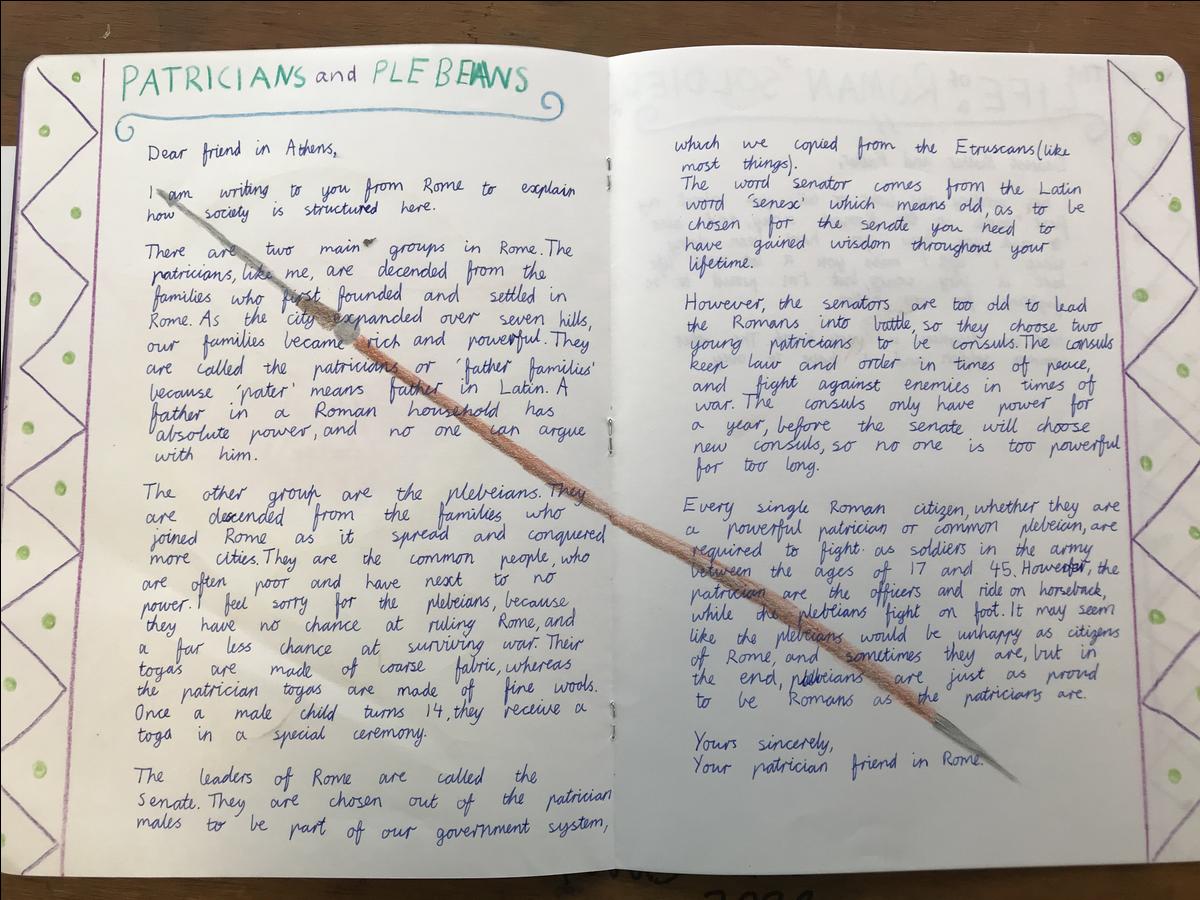 PATRICIANS and PLEBEIANS
Dear friend in Athens,
I am writing to you from Rome to explain
how society is structured here.
There are two main groups in Rome. The
patricians, like me, are decended from the
families who first founded and settled in
Rome. As the city expanded over seven hills,
our families became rich and powerful. They
are called the patricians or 'father families'
because 'pater' means father in Latin. A
father in a Roman household has
absolute power, and no one can argue
with him.
The other group are the plebeians. They
are descended from the families who
joined Rome as it spread and conquered
more cities. They are the common people, who
are often poor and have next to no
power. I feel sorry for the plebeians, because
they have no chance at ruling Rome, and
a far less chance at surviving war. Their
togas are made of coarse fabric, whereas
the patrician togas are made of fine wools.
Once a male child turns 14, they receive a
toga in a special ceremony.
The leaders of Rome are called the
Senate. They are chosen out of the patrician
males to be part of our government system,
which we copied from the Etruscans (like
most things).
The word senator comes from the Latin
word 'senex' which means old, as to be
chosen for the senate you need to
have gained wisdom throughout your
lifetime.
However, the senators are too old to lead
the Romans into battle, so they choose two
young patricians to be consuls. The consuls
keep law and order in times of peace,
and fight against enemies in times of
war. The consuls only have power for
a year, before the senate will choose
new consuls, so no one is too powerful
for too long.
Every single Roman citizen, whether they are
a powerful patrician or common plebeian, are
required to fight as soldiers in the army
between the ages of 17 and 45. However, the
patrician are the officers and ride on horseback,
while the plebeians fight on foot. It may seem
like the plebeians would be unhappy as citizens
of Rome, and sometimes they are, but in
the end, plebeians are just as proud
to be Romans as the patricians are.
Yours sincerely,
Your patrician friend in Rome.